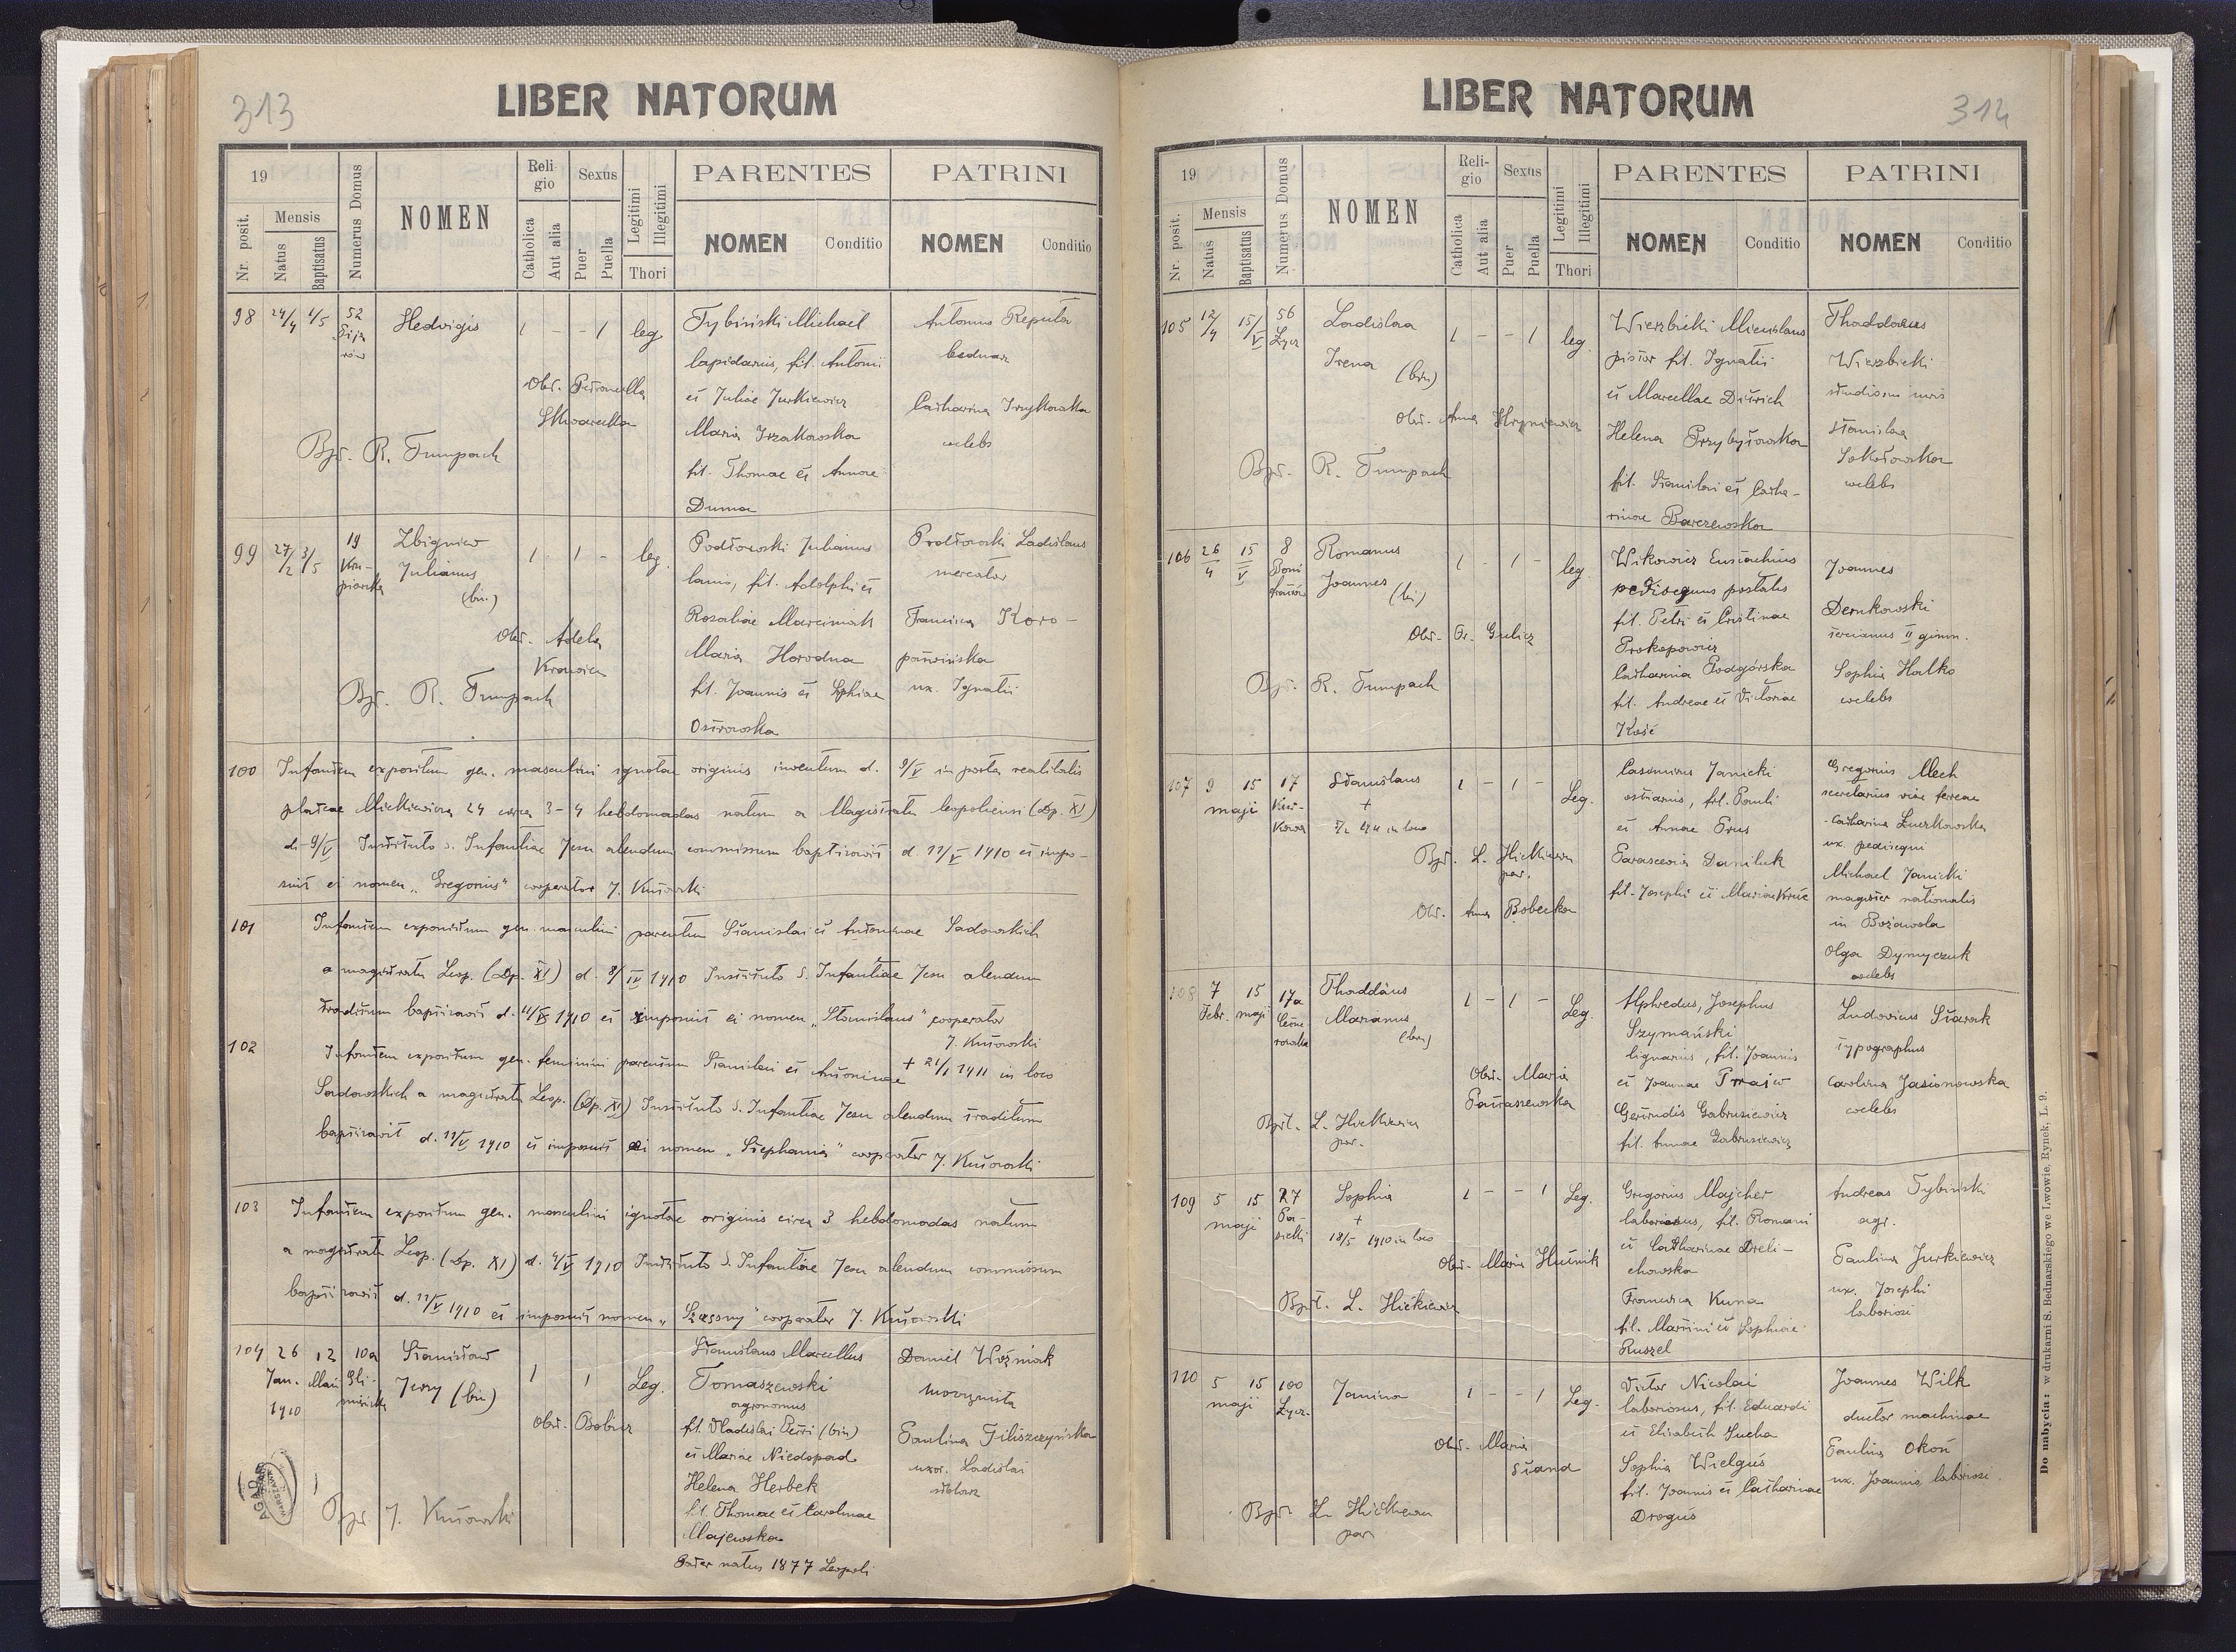 313
LIBER NATORUM
19
Nr. posit.
Mensis
Natus
Baptisatus
Numerus Domus
NOMEN
Religio
Catholica
Aut alia
Sexus
Puer
Puella
Legitimi
Illegitimi
Thori
PARENTES
NOMEN Conditio
PATRINI
NOMEN Conditio
98 24/4 1/5 52 Hedvigis 1 - - 1 leg.
Obst. Petronella
Skwarella
Bpt. R. Trumpach
Tybiński Michael
lapidarius, fil. Antonii
et Juliae Jurkiewicz
Maria Irzakowska
fil. Thomae et Annae
Duma
Antonius Reputa
bednarz
Catharina Irzykowska
coelebs
99 27/2 3/5 19 Zbigniew 1 - 1 - leg.
Julianus
(bin.)
Obst. Adela
Krowicz
Bpt. R. Trumpach
Podłowski Julianus
lanio, fil. Adolphi et
Rosaliae Marciniak
Maria Horodna
fil. Joannis et Sophiae
Ostrowska
Podłowski Ladislaus
mercator
Francisca Koro-
ux. Ignatii
100 Infantem expositum gen. masculini ignotae originis inventum d. 9/V in porta realitatis
plateae Mickiewicza 24 circa 3-4 hebdomadas natum a Magistratu leopoliensi (Dp. XI)
d. 9/V Instituto S. Infantiae Jesu alendum commissum baptisavit d. 12/V 1910 et impo-
suit ei nomen „Gregorius" cooperator J. Kutowski
101 Infantem expositum gen. masculini parentum Stanislai et Antoninae Sadowskich
a magistratu Leop. (Dp. XI) d. 8/IV 1910 Instituto S. Infantiae Jesu alendum
traditum baptisavit d. 12/V 1910 et imposuit ei nomen „Stanislaus" cooperator
J. Kutowski
102 Infantem expositum gen. feminini parentum Stanislai et Antoninae + 21/1 1911 in loco
Sadowskich a magistratu Leop. (Dp. XI) Instituto S. Infantiae Jesu alendum traditum
baptisavit d. 12/V 1910 et imposuit ei nomen „Stephania" cooperator J. Kutowski
103 Infantem expositum gen. masculini ignotae originis circa 3 hebdomadas natum
a magistratu Leop. (Dp. XI) d. 4/V 1910 Instituto S. Infantiae Jesu alendum commissum
baptisavit d. 12/V 1910 et imposuit nomen „Szczęsny" cooperator J. Kutowski
104 26 12 10a Stanisław 1 1 Leg.
Jan. Maii
1910
Jerzy (bin)
Obst. Bobisz
Bpt. J. Kutowski
Stanislaus Marcellus
Tomaszewski
agronomus
fil. Vladislai Petri (bin)
et Mariae Niedopad
Helena Herbek
fil. Thomae et Carolinae
Majewska
Pater natus 1877 Leopoli
Daniel Woźniak
maszynista
Paulina Filiszczyńska
uxor. Ladislai
AGAD
WARSZAWA
LIBER NATORUM
314
19
Nr. posit.
Mensis
Natus
Baptisatus
Numerus Domus
NOMEN
Religio
Catholica
Aut alia
Sexus
Puer
Puella
Legitimi
Illegitimi
Thori
PARENTES
NOMEN Conditio
PATRINI
NOMEN Conditio
105 12/4 15/V 56 Ladislaa 1 - - 1 leg.
Łycz
Irena
(bin)
Obst. Anna Hryniewicz
Bpt. R. Trumpach
Wierzbicki Miecislaus
pistor fil. Ignatii
et Marcellae Ditrich
Helena Przybyłowska
fil. Stanislai et Catha-
rinae Barczewska
Thaddaeus
Wierzbicki
studiosus iuris
Stanislaa
Sokołowska
coelebs
106 26/4 15/V 8 Romanus 1 - 1 - leg.
Joannes (bi)
Obst. Or. Gulicz
Bpt. R. Trumpach
Witowicz Eustachius
pedisequus postalis
fil. Petri et Cristinae
Prokopowicz
Catharina Podgórska
fil. Andreae et Victoriae
Kość
Joannes
Dernkowski
tercianus II gimn.
Sophia Halko
coelebs
107 9 15 17 Stanislaus 1 - 1 - Leg.
maji
Bpt. L. Hickiewicz
par.
Obst. Anna Bobecka
Casimirus Janicki
ostiarius, fil. Pauli
et Annae Prus
Parascevia Daniluk
fil. Josephi et Mariae Kruć
Gregorius Mech
secretarius viae ferreae
Catharina Żuerkowska
ux. pedisequi
Michael Janicki
magister nationalis
in Bożawola
Olga Dymyczuk
coelebs
108 7 15 17a Thaddäus 1 - 1 - Leg.
Febr. maji
Marianus
(bin)
Obst. Maria
Pataszewska
Bpt. L. Hickiewicz
par.
Alphredus, Josephus
Szymański
lignarius, fil. Joannis
et Joannae Prajs
Gertrudis Gabrusiewicz
fil. Annae Gabrusiewicz
Ludovicus Siwak
typographus
Carolina Jasionowska
coelebs
109 5 15 27 Sophia 1 - - 1 Leg.
maji
+
18/5 1910 in loco
Obst. Maria Hutnik
Bpt. L. Hickiewicz
Gregorius Majcher
laboriosus, fil. Romani
et Catharinae Dreli-
chowska
Francisca Kuna
fil. Martini et Sophiae
Ruszel
Andreas Tybiński
agr.
Paulina Jurkiewicz
ux. Josephi
laboriosi
110 5 15 100 Janina 1 - - 1 Leg.
maji Łycz.
Obst. Maria
Stand
Bpt. L. Hickiewicz
par
Victor Nicolai
laboriosus, fil. Eduardi
et Elisabeth Sucha
Sophia Wielgus
fil. Joannis et Catharinae
Drogus
Joannes Wilk
ductor machinae
Paulina Okoń
ux. Joannis laboriosi.
Do nabycia: w drukarni S. Bednarskiego we Lwowie, Rynek, L. 9.